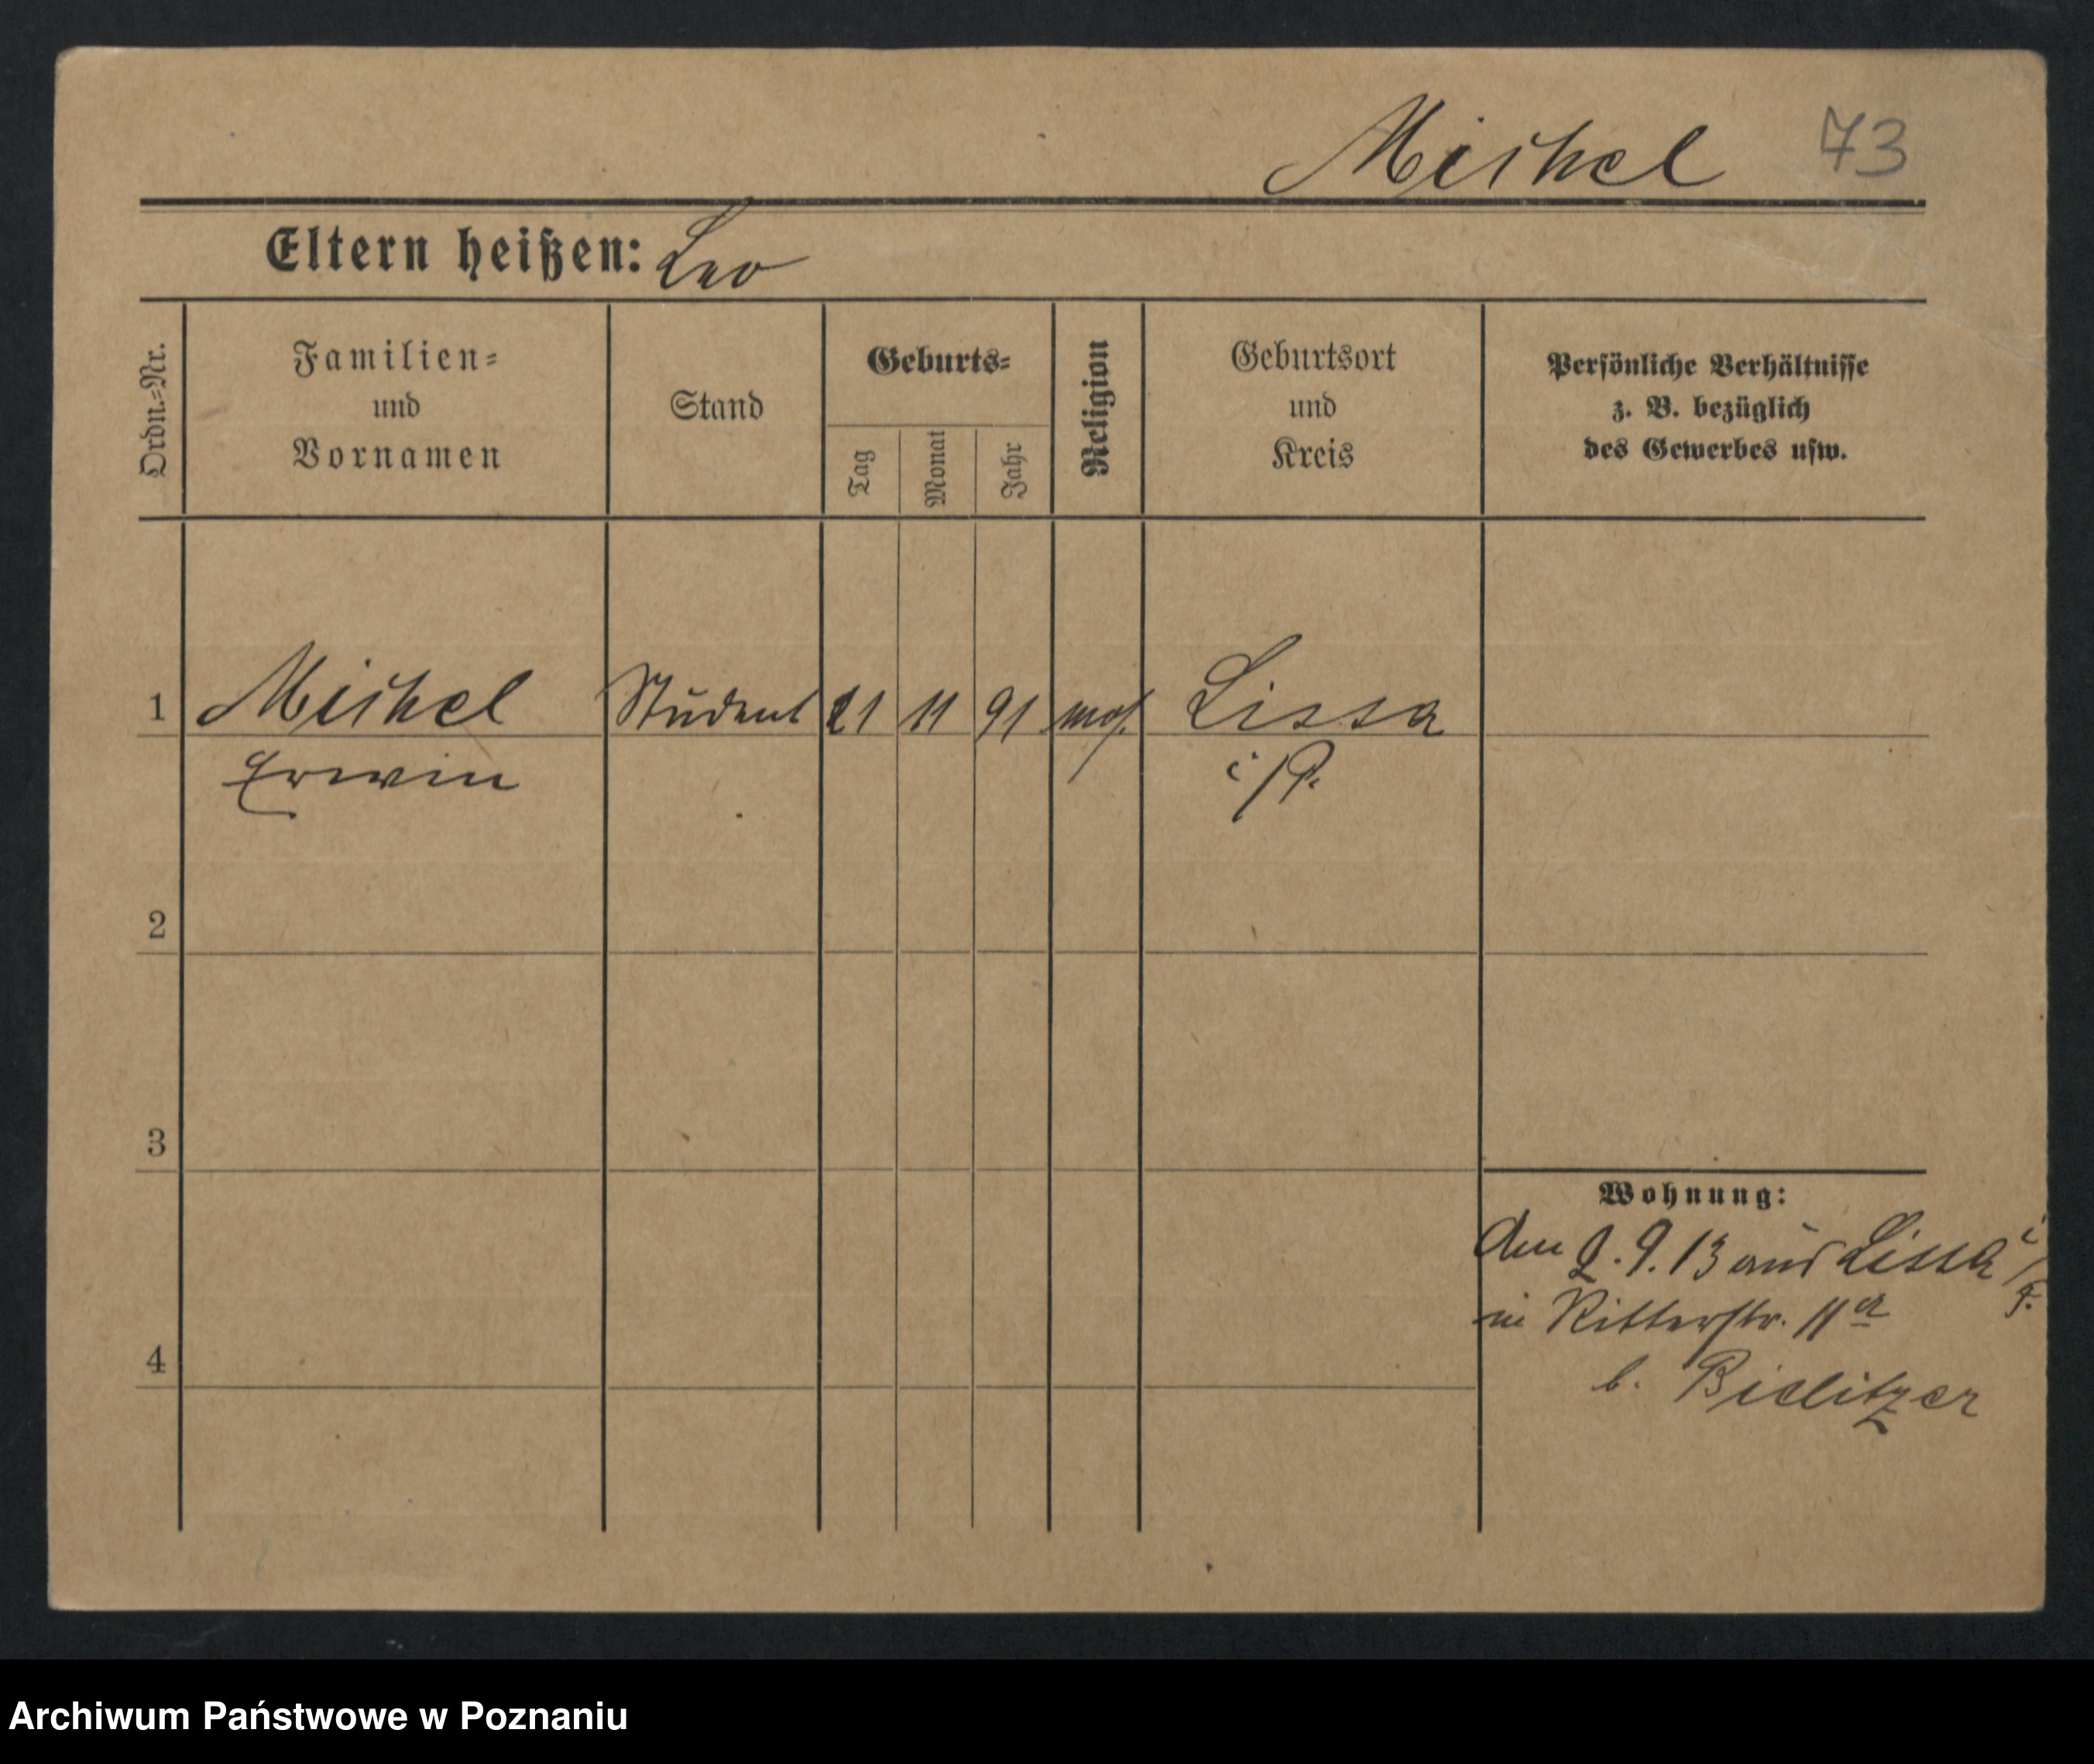 Mishel 73
Eltern heißen: Leo
Ordn.=Nr.
Familien=
und
Vornamen
Stand
Geburts=
Tag
Monat
Jahr
Religion
Geburtsort
und
Kreis
Persönliche Verhältnisse
z. B. bezüglich
des Gewerbes usw.
1 Mishel Student 21 11 91 mos. Lissa
Erwin i/P.
2
3
4
Wohnung:
Am 2.9.13 aus Lissa i/P.
in Ritterstr. 11a
b. Bielitzer
Archiwum Państwowe w Poznaniu